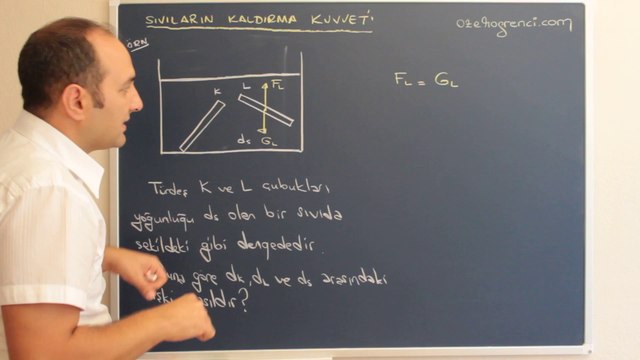 SIVILARIN KALDIRMA KUVVETİ
ozelogrenci.com
ÖRN
K L FL
ds GL
FL = GL
Türdeş K ve L çubukları
yoğunluğu ds olan bir sıvıda
şekildeki gibi dengededir.
göre dK, dL ve ds arasındaki
?